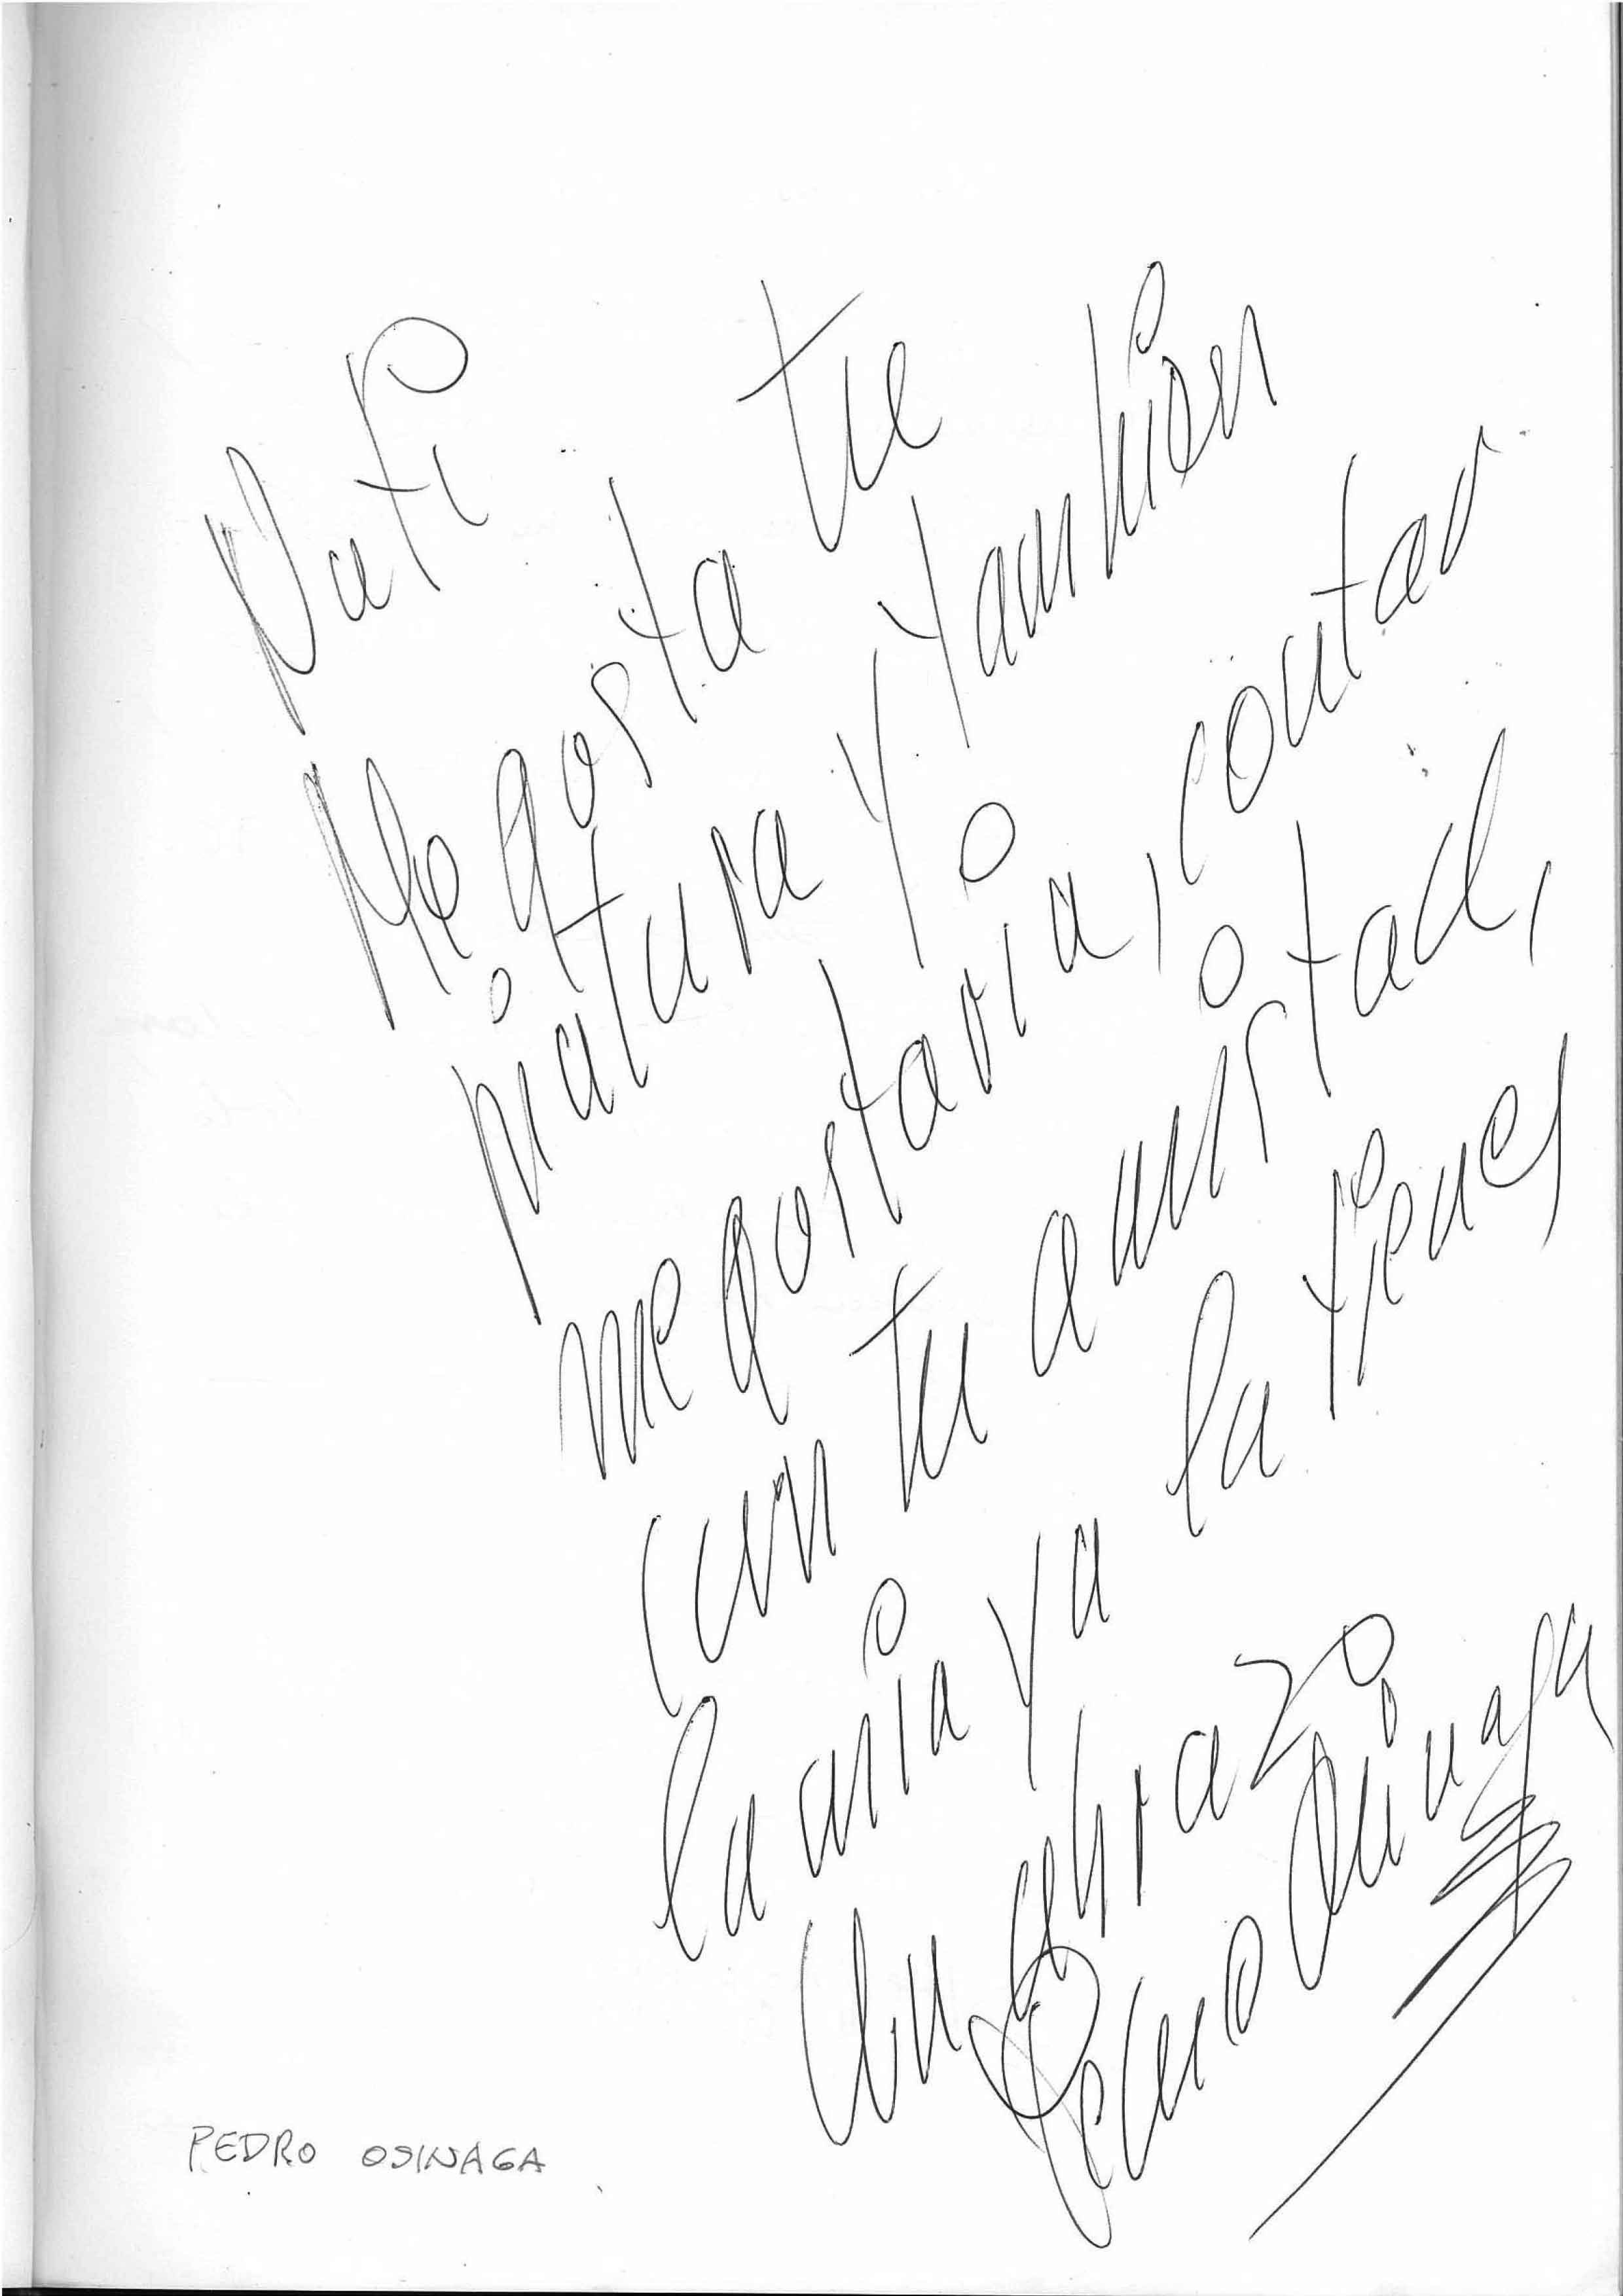 Nati
Me gosta tu
pintura y también
me gostaria, contar
con tu amistad,
la mia ya la tienes
Un abrazo
Pedro Osinaga
PEDRO OSINAGA